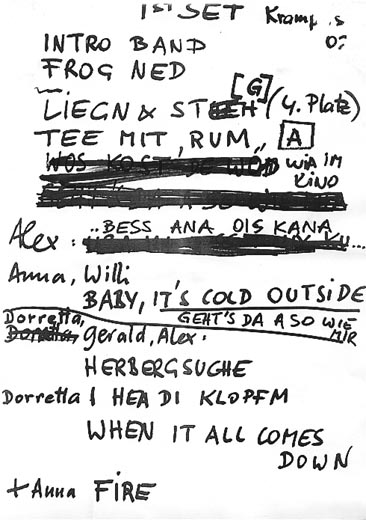 1ST SET Kramp s
INTRO BAND 07
FROG NED
[G]
LIEGN & STEH (4. Platz)
TEE MIT "RUM" [A]
WOS KOST DE WÖD WIA IM
KINO
Alex: ..BESS ANA OIS KANA
Anna, Willi
BABY, IT'S COLD OUTSIDE
Dorretta, GEHT'S DA A SO WIE
MIR
Dorretta Gerald, Alex:
HERBERGSUCHE
Dorretta I HEA DI KLOPFM
WHEN IT ALL COMES
DOWN
+ Anna FIRE